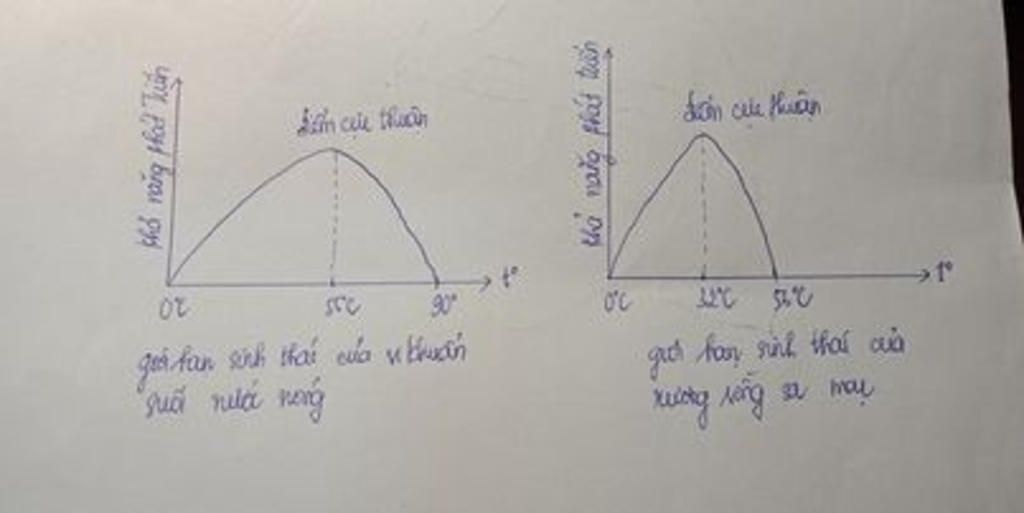 khả năng phát triển
điểm cực thuận
t°
0°C
55°C
90°
giới hạn sinh thái của vi khuẩn
suối nước nóng
khả năng phát triển
điểm cực thuận
t°
0°C
32°C
56°C
giới hạn sinh thái của
xương rồng sa mạc